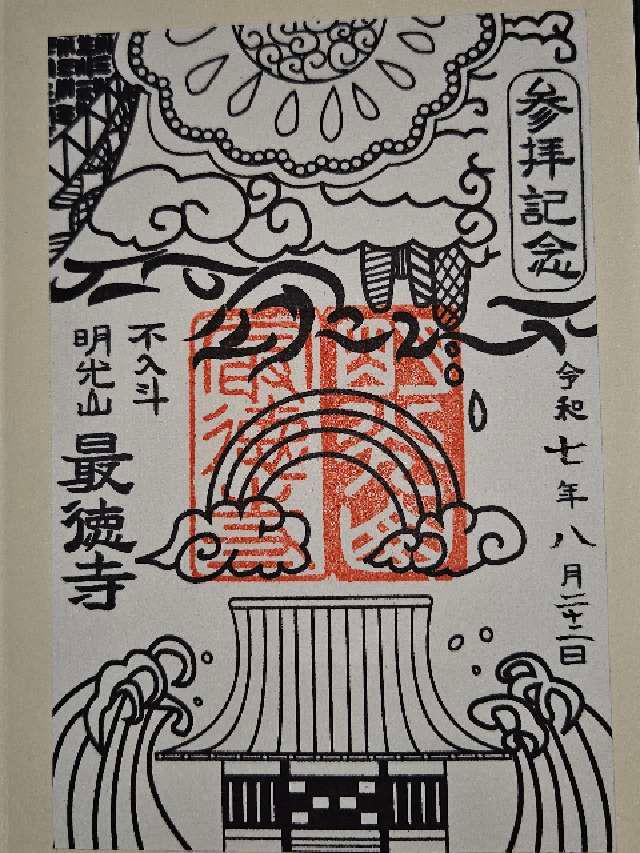 参拝記念
令和七年八月二十二日
不入斗
明光山
最徳寺